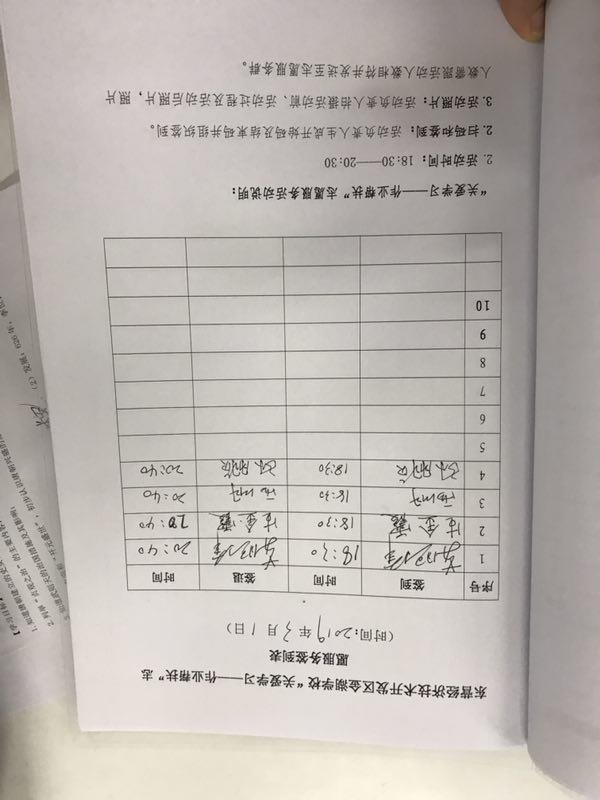 东营经济技术开发区金湖学校“关爱学习——作业帮扶”志
愿服务签到表
（时间：2019年3月1日）
序号 签到 时间 签退 时间
1 18:30 20:40
2 18:30 20:40
3 18:30 20:40
4 18:30 20:40
5
6
7
8
9
10
“关爱学习——作业帮扶”志愿服务活动说明：
2. 活动时间：18:30——20:30
2. 扫码和签到：活动负责人生成开始码及结束码并组织签到。
3. 活动照片：活动负责人拍摄活动前、活动过程及活动后照片，照片
人数需跟活动人数相符并发送至志愿服务群。